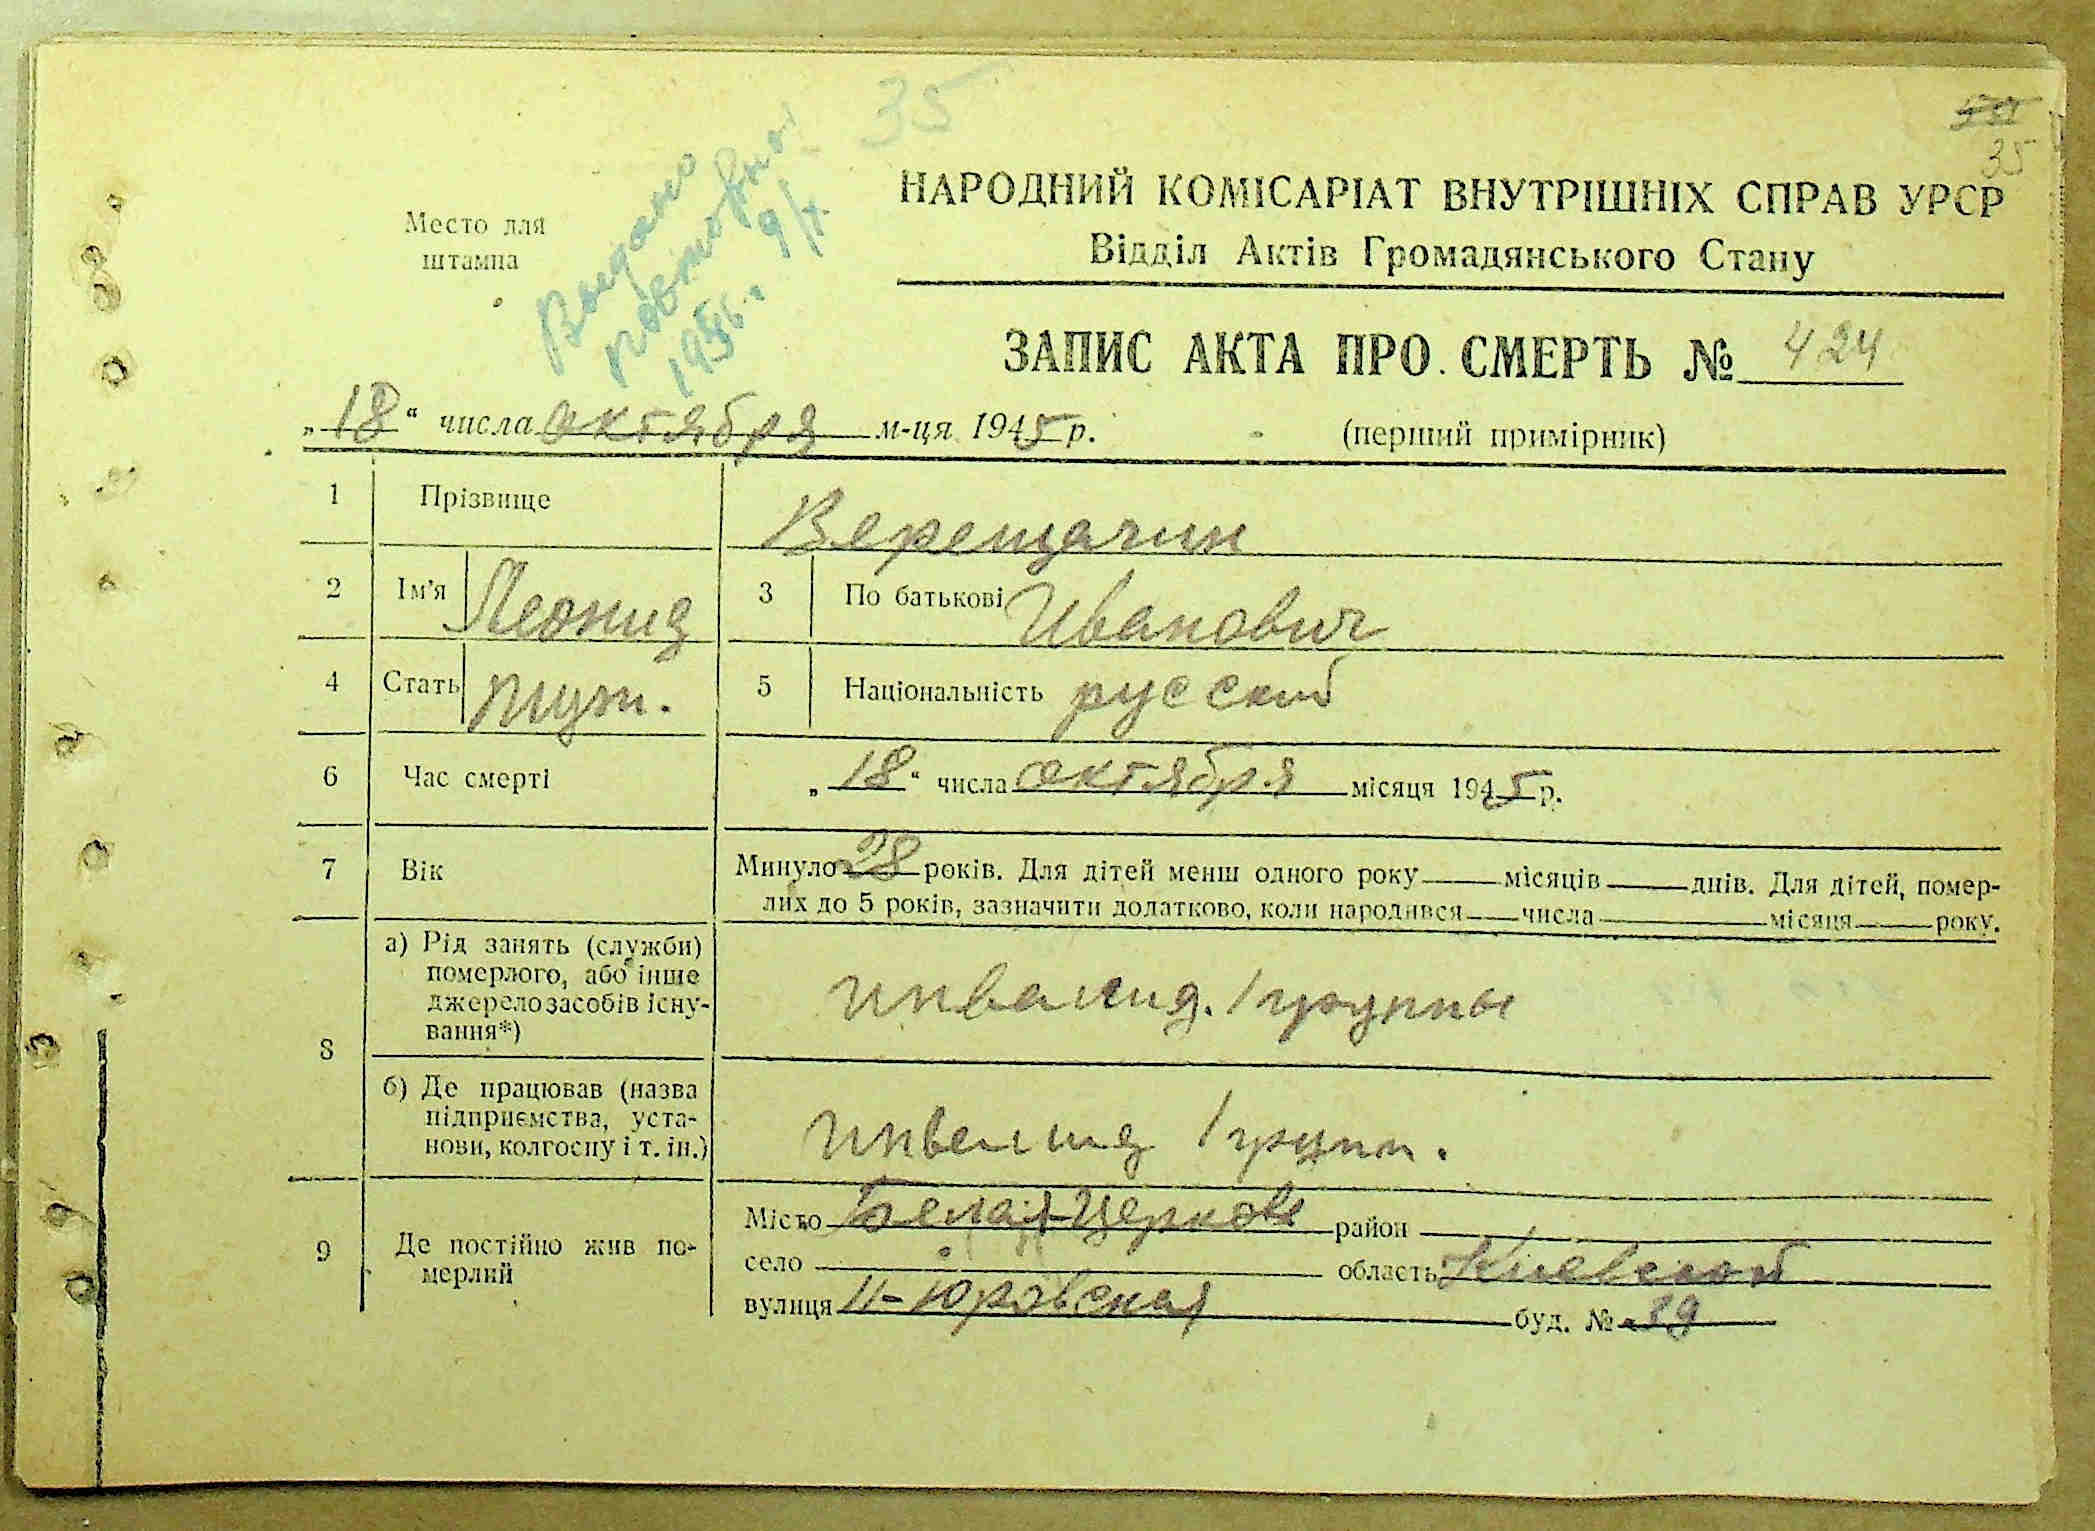 35
35
НАРОДНИЙ КОМІСАРІАТ ВНУТРІШНІХ СПРАВ УРСР
Відділ Актів Громадянського Стану
Место для
штампа
Выдано
повторно
9/X
ЗАПИС АКТА ПРО СМЕРТЬ № 424
„18“ числа октября м-ця 1945 р. (перший примірник)
1 Прізвище Верещагин
2 Ім'я Леонид 3 По батькові Иванович
4 Стать муж. 5 Національність русский
6 Час смерті „18“ числа октября місяця 1945 р.
7 Вік Минуло 28 років. Для дітей менш одного року місяців днів. Для дітей, помер-
лих до 5 років, зазначити додатково, коли народився числа місяця року.
8 а) Рід занять (служби)
померлого, або інше
джерело засобів існу-
вання*)
инвалид. I группы
б) Де працював (назва
підприємства, уста-
нови, колгоспу і т. ін.)
инвалид I групп.
9 Де постійно жив по-
мерлий
Місто Белая-Церковь район
село область Киевской
вулиця юровская буд. № 39